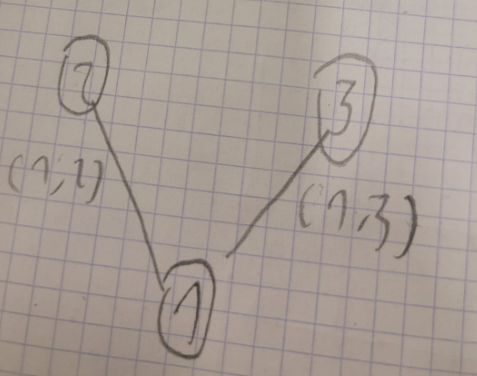 2
3
(1,2)
(1,3)
1